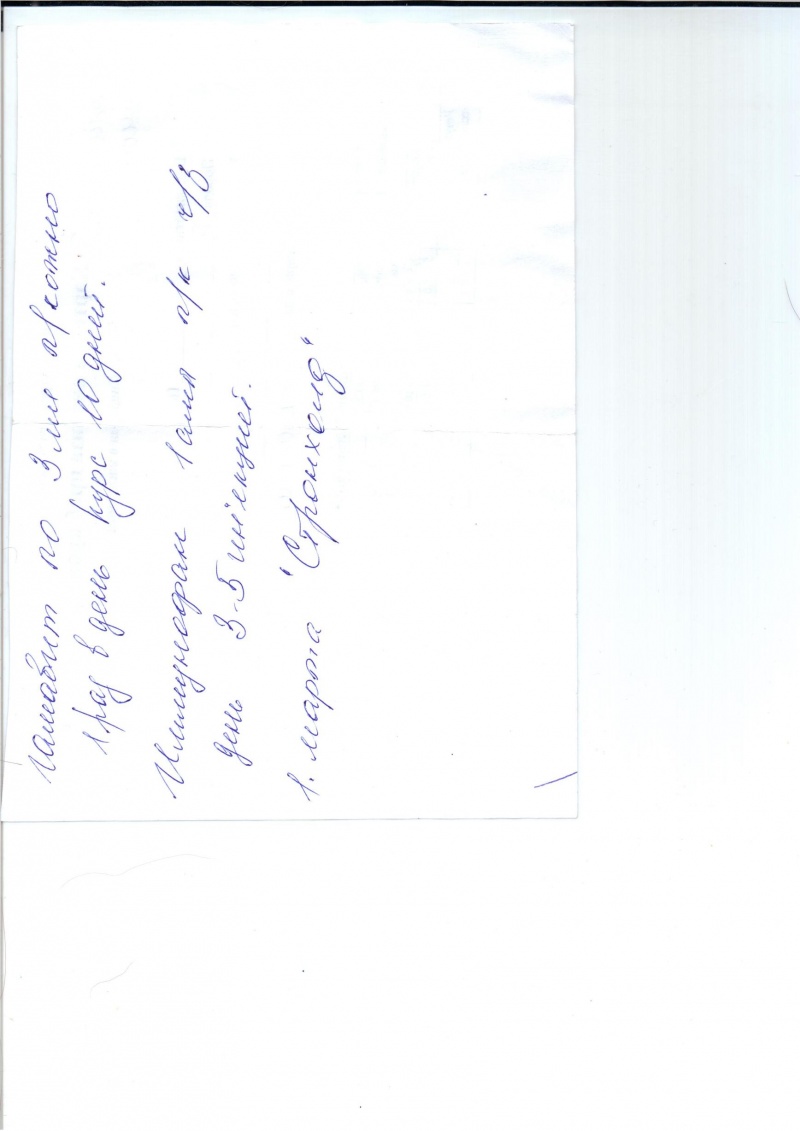 Гамавит по 3 мл п/кожно
1 раз в день курс 10 дней.
Иммунофан 1 амп п/к ч/з
день 3-5 инъекций.
1. марта "Стронхолд"